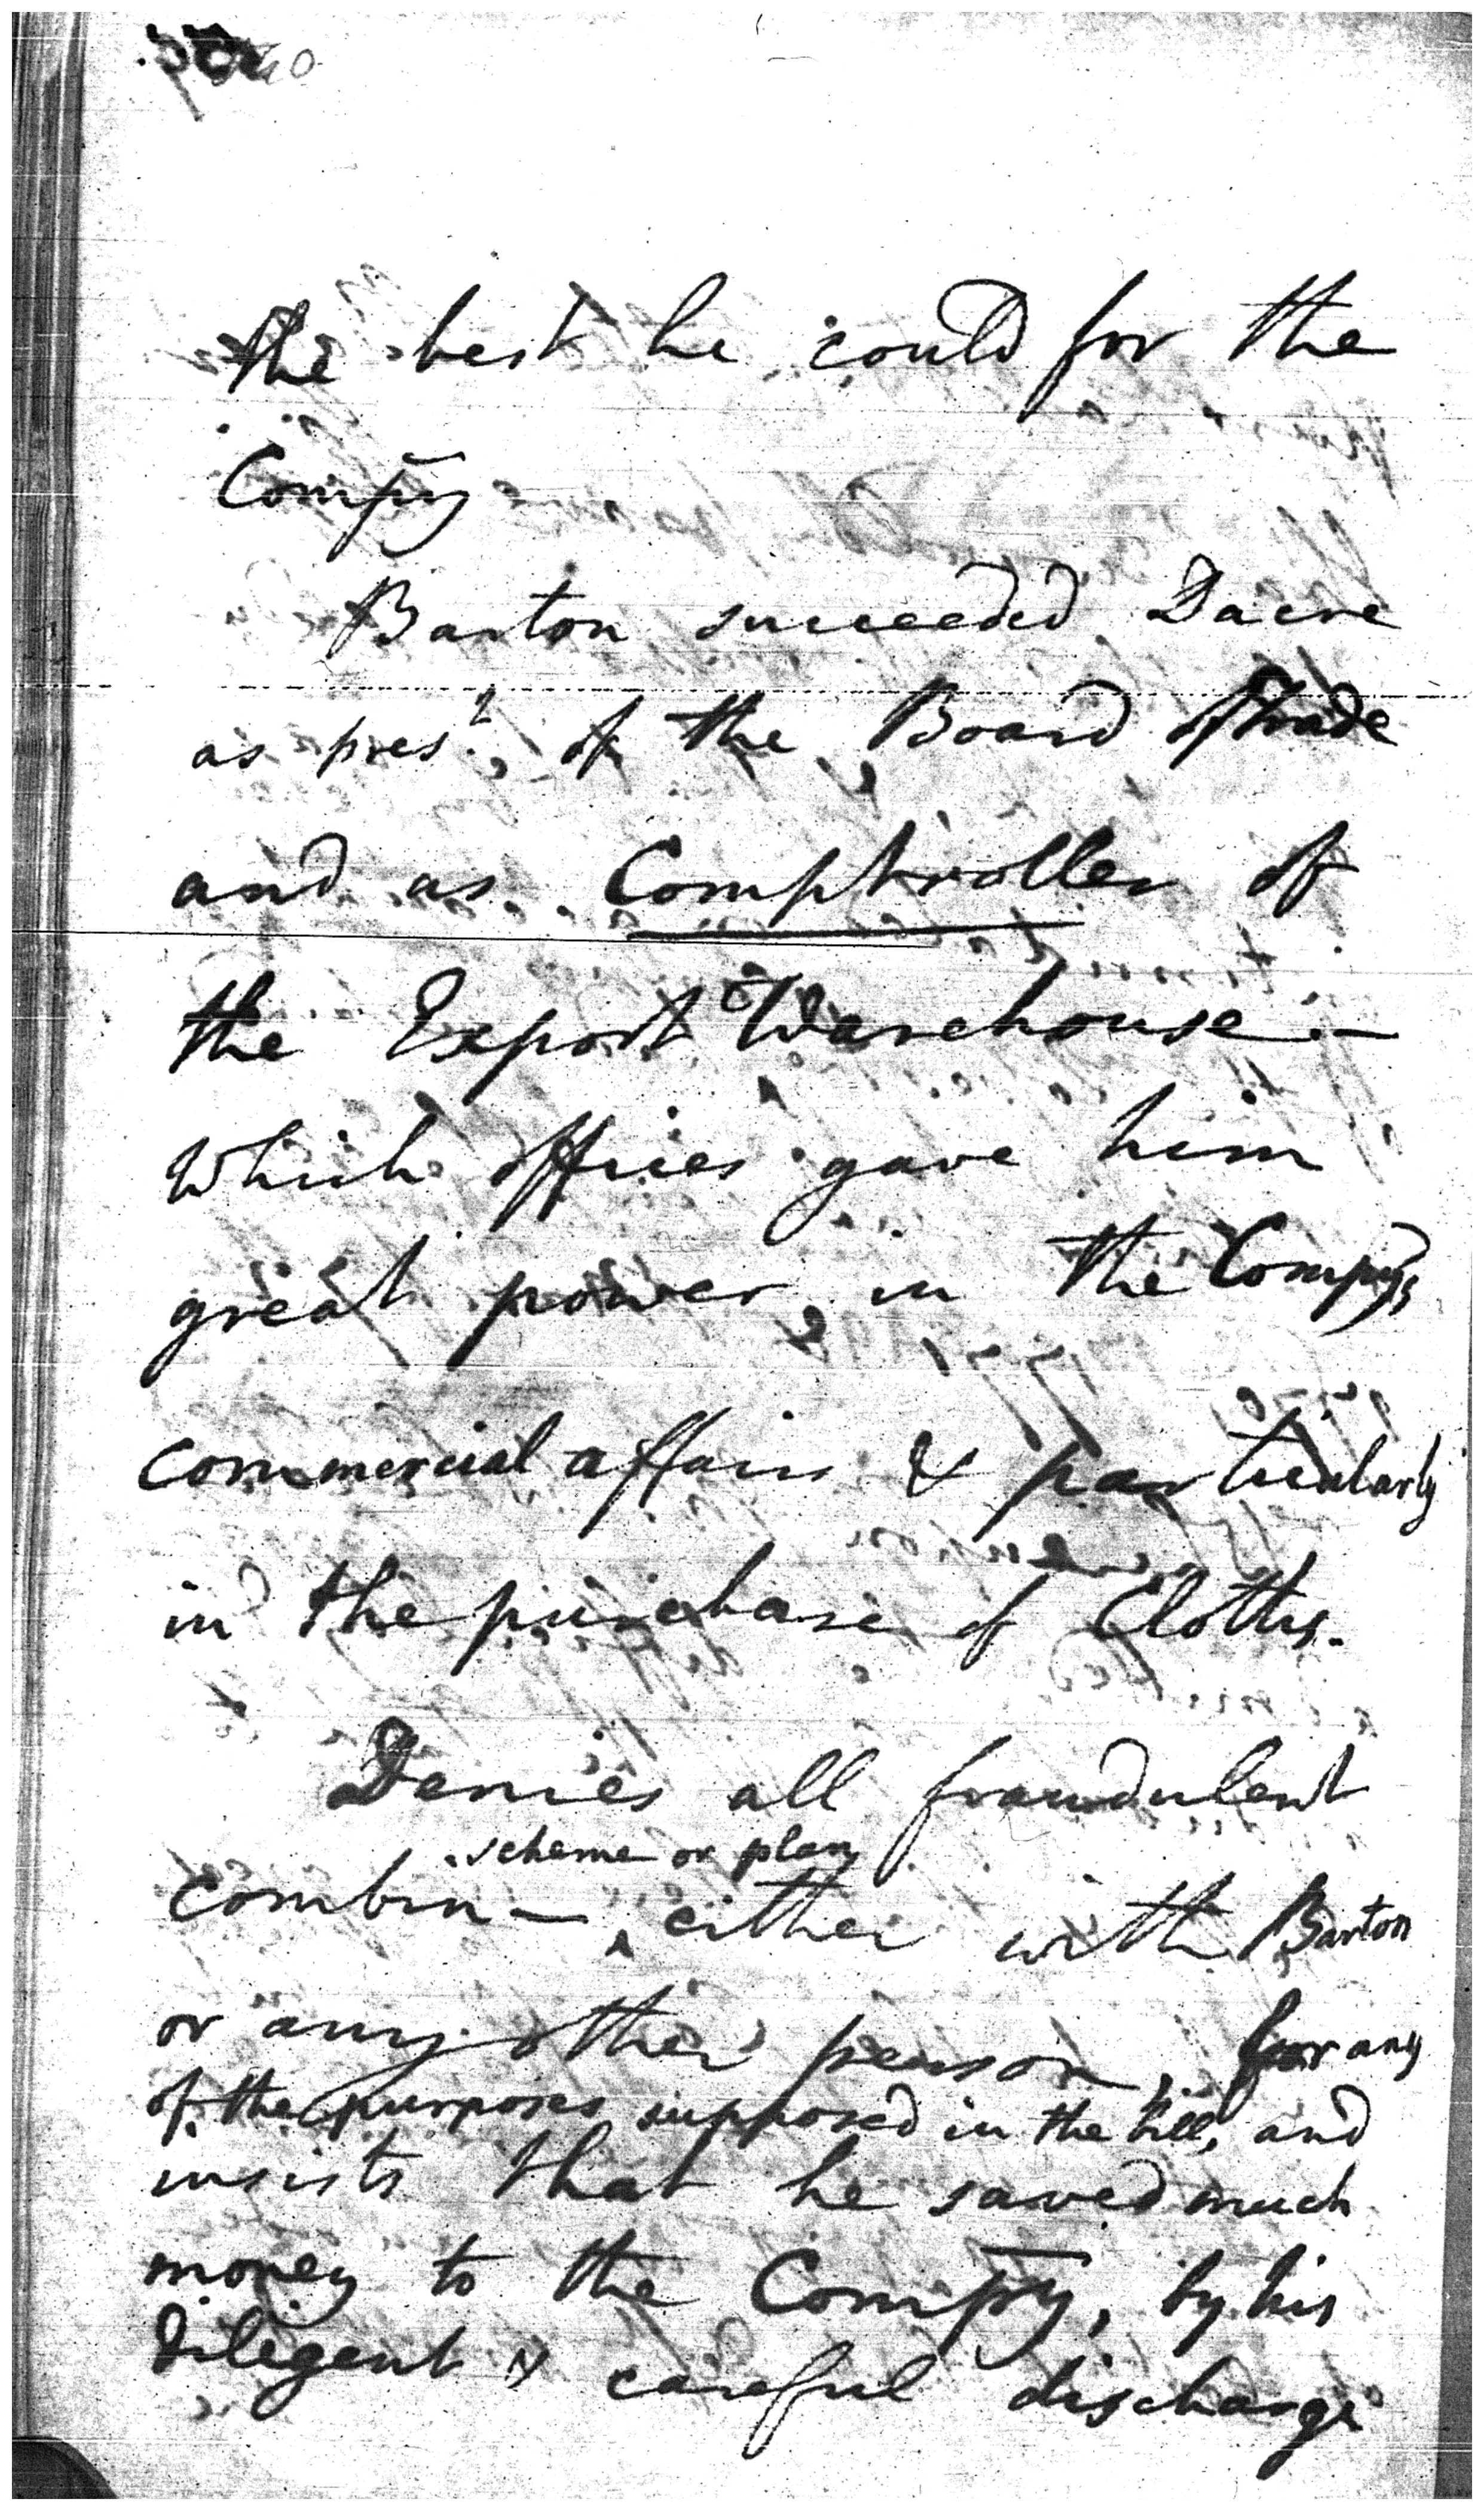 the best he could for the
Compy
Barton succeeded Dacre
as prest, of the Board of trade
and as Comptroller of
the Export Warehouse —
which offices gave him
great power, in the Compys
commercial affairs & particularly
in the purchase of Cloths.
Denies all fraudulent
scheme or plan
combin— ^ either with Barton
or any other person, for any
of the purposes supposed in the bill, and
insists that he saved much
money to the Compy, by his
diligent & careful discharge